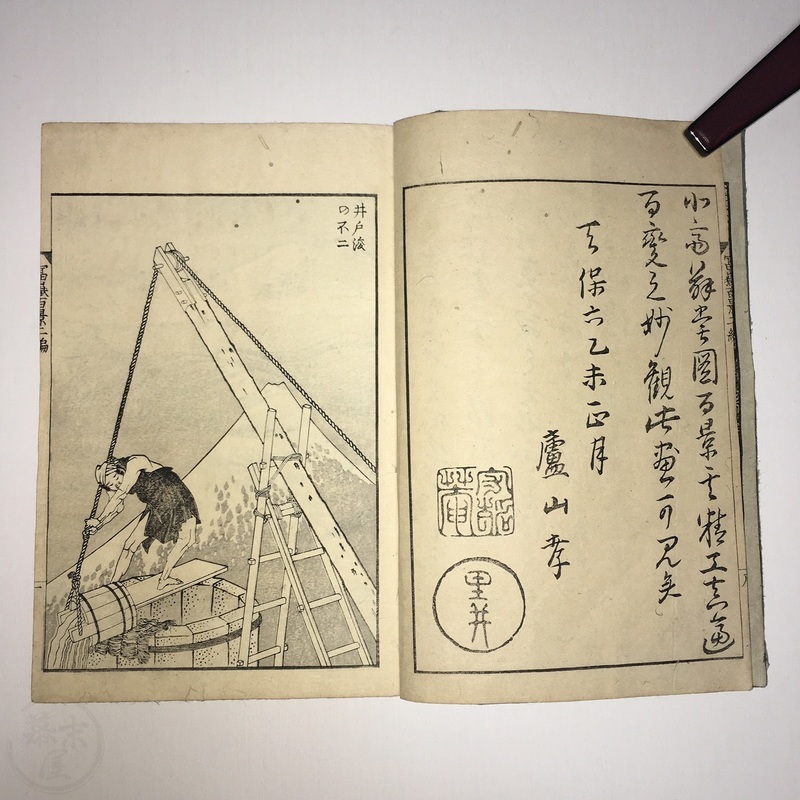 図百景其精工真逼
百変之妙観此画可見矣
天保六乙未正月
廬山孝
里井
井戸浚
の不二
富嶽百景二編